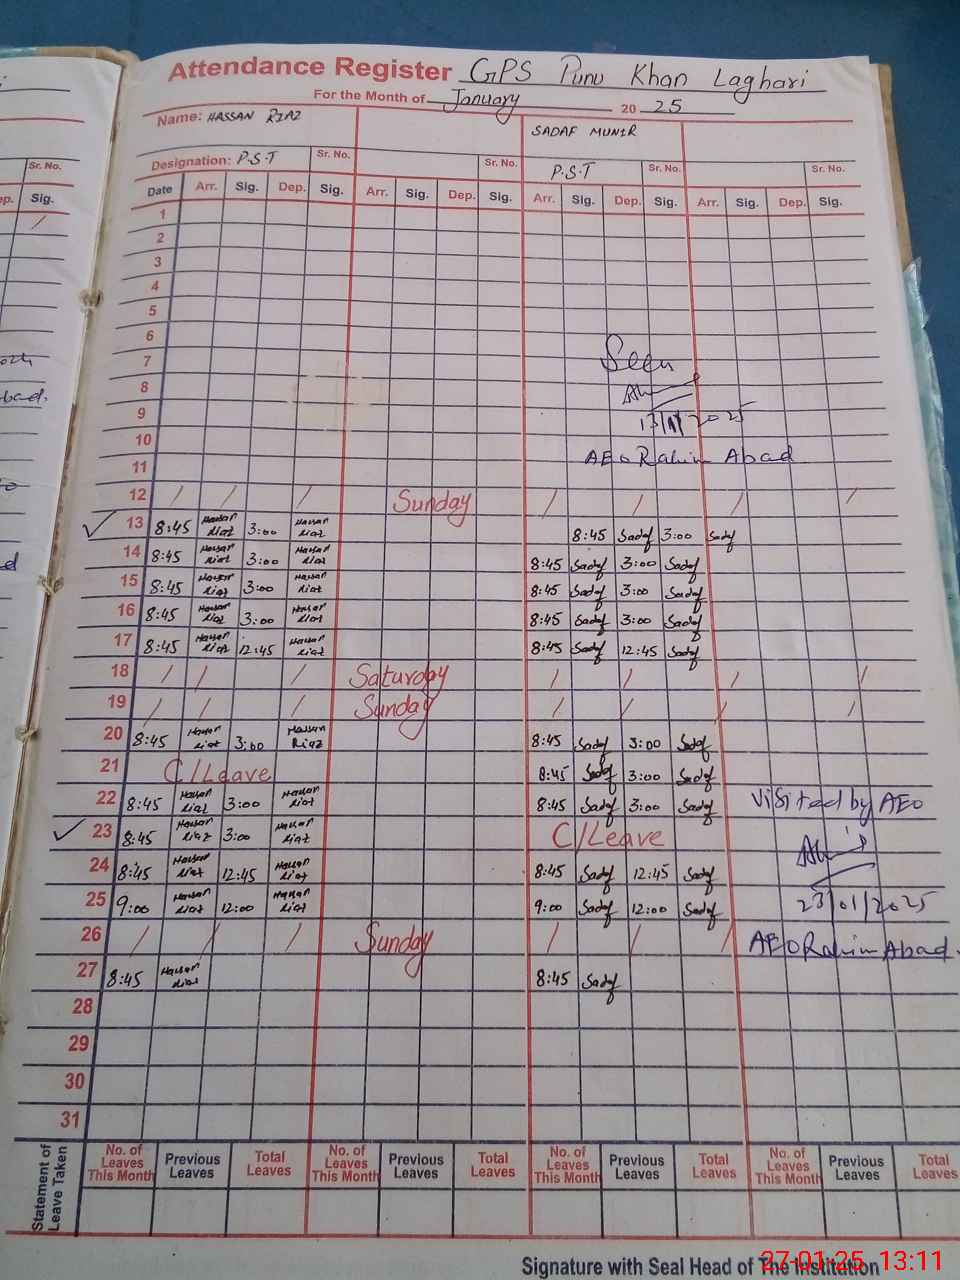 Attendance Register GPS Punu Khan Laghari
For the Month of January 20 25
Name: HASSAN RIAZ SADAF MUNIR
Designation: P.S.T Sr. No. Sr. No. P.S.T Sr. No. Sr. No.
Date Arr. Sig. Dep. Sig. Arr. Sig. Dep. Sig. Arr. Sig. Dep. Sig. Arr. Sig. Dep. Sig.
1
2
3
4
5
6
7 Seen
8
9 2025
10
11 AEO Rahim Abad
12 / / / Sunday / / / /
13 8:45 Hassan Riaz 3:00 Hassan Riaz 8:45 Sadaf 3:00 Sadaf
14 8:45 Hassan Riaz 3:00 Hassan Riaz 8:45 Sadaf 3:00 Sadaf
15 8:45 Hassan Riaz 3:00 Hassan Riaz 8:45 Sadaf 3:00 Sadaf
16 8:45 Hassan Riaz 3:00 Hassan Riaz 8:45 Sadaf 3:00 Sadaf
17 8:45 Hassan Riaz 12:45 Hassan Riaz 8:45 Sadaf 12:45 Sadaf
18 / / / Saturday / / / /
19 / / / Sunday / / / /
20 8:45 Hassan Riaz 3:00 Hassan Riaz 8:45 Sadaf 3:00 Sadaf
21 C/Leave 8:45 Sadaf 3:00 Sadaf
22 8:45 Hassan Riaz 3:00 Hassan Riaz 8:45 Sadaf 3:00 Sadaf Visited by AEO
23 8:45 Hassan Riaz 3:00 Hassan Riaz C/Leave
24 8:45 Hassan Riaz 12:45 Hassan Riaz 8:45 Sadaf 12:45 Sadaf
25 9:00 Hassan Riaz 12:00 Hassan Riaz 9:00 Sadaf 12:00 Sadaf 23/01/2025
26 / / / Sunday / / / AEO Rahim Abad.
27 8:45 Hassan Riaz 8:45 Sadaf
28
29
30
31
Statement of Leave Taken
No. of Leaves This Month Previous Leaves Total Leaves No. of Leaves This Month Previous Leaves Total Leaves No. of Leaves This Month Previous Leaves Total Leaves No. of Leaves This Month Previous Leaves Total Leaves
Signature with Seal Head of The Institution
27.01.25 13:11
Sr. No.
Sig.